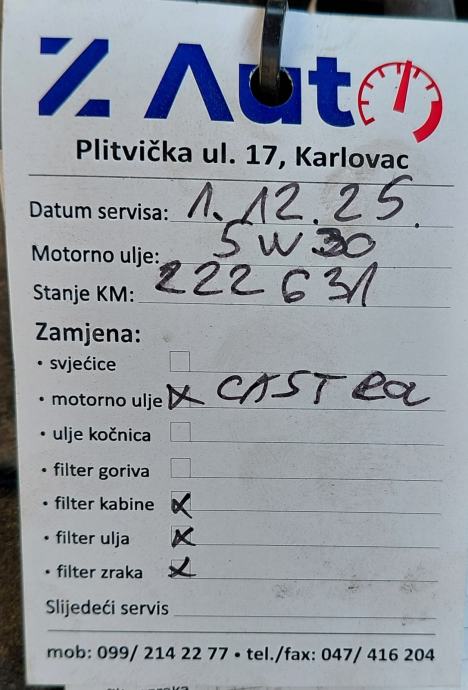 Z Auto
Plitvička ul. 17, Karlovac
Datum servisa: 1.12.25.
Motorno ulje: 5W30
Stanje KM: 222631
Zamjena:
• svjećice
• motorno ulje X CASTROL
• ulje kočnica
• filter goriva
• filter kabine X
• filter ulja X
• filter zraka X
Slijedeći servis
mob: 099/ 214 22 77 • tel./fax: 047/ 416 204